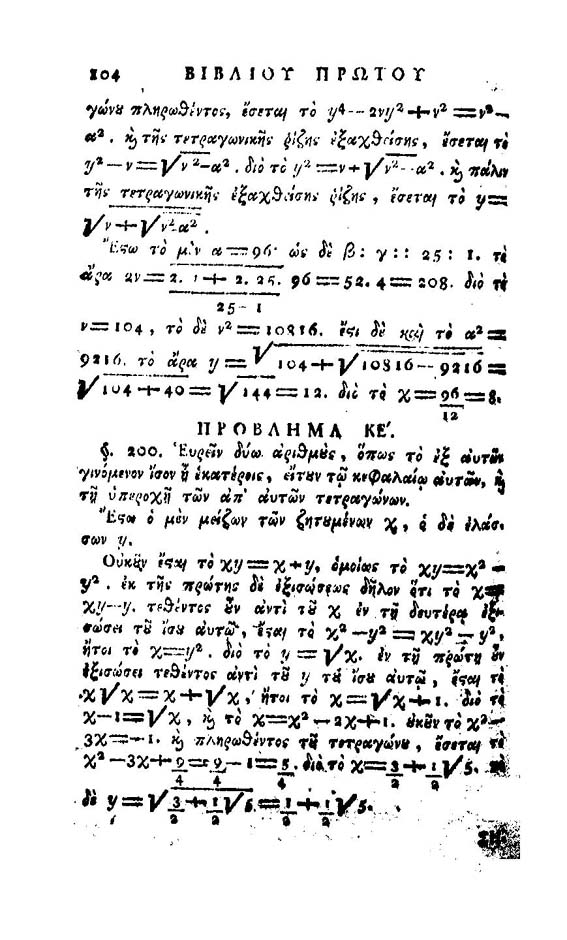 104 ΒΙΒΛΙΟΥ ΠΡΩΤΟΥ
γώνȣ πληρωθέντος, ἔσεται τὸ y⁴ -- 2νy² + ν² = ν² --
α². ϗ τῆς τετραγωνικῆς ῥίζης ἐξαχθείσης, ἔσεται τὸ
y² -- ν = √ν² -- α². διὸ τὸ y² = ν + √ν² -- α². ϗ πάλιν
τῆς τετραγωνικῆς ἐξαχθείσης ῥίζης, ἔσεται τὸ y =
√ν + √ν² α².
Ἔστω τὸ μὲν α = 96· ὡς δὲ β : γ :: 25 : 1. τὸ
ἄρα 2ν = 2. 1 + 2. 25. 96 = 52. 4 = 208. διὸ τὸ
25 - 1
ν = 104, τὸ δὲ ν² = 10816. ἔστι δὲ καὶ τὸ α² =
9216. τὸ ἄρα y = √104 + √10816 -- 9216 =
√104 + 40 = √144 = 12. διὸ τὸ χ = 96 = 8.
12
ΠΡΟΒΛΗΜΑ ΚΕ΄.
§. 200. Εὑρεῖν δύω ἀριθμȣ̀ς, ὅπως τὸ ἐξ αὐτῶν
γινόμενον ἴσον ᾖ ἑκατέροις, εἴτȣν τῷ κεφαλαίῳ αὐτῶν, ϗ
τῇ ὑπεροχῇ τῶν ἀπ' αὐτῶν τετραγώνων.
Ἔστω ὁ μὲν μείζων τῶν ζητȣμένων χ, ὁ δὲ ἐλάσ-
σων y.
Οὐκȣ͂ν ἔσται τὸ χy = χ + y, ὁμοίως τὸ χy = χ² --
y². ἐκ τῆς πρώτης δὲ ἐξισώσεως δῆλον ὅτι τὸ χ =
χy -- y. τεθέντος ȣ̓͂ν ἀντὶ τȣ͂ χ ἐν τῇ δευτέρᾳ ἐξι-
σώσει τȣ͂ ἴσȣ αὐτῷ, ἔσται τὸ χ² -- y² = χy² -- y²,
ἤτοι τὸ χ = y². διὸ τὸ y = √χ. ἐν τῇ πρώτῃ ȣ̓͂ν
ἐξισώσει τεθέντος ἀντὶ τȣ͂ y τȣ͂ ἴσȣ αὐτῷ, ἔσται τὸ
χ√χ = χ + √χ, ἤτοι τὸ χ = √χ + 1. διὸ τὸ
χ -- 1 = √χ, ϗ τὸ χ = χ² -- 2χ + 1. ȣ̓κȣ͂ν τὸ χ² --
3χ = -- 1. ϗ πληρωθέντος τȣ͂ τετραγώνȣ, ἔσεται τὸ
χ² -- 3χ + 9 = 9 -- 1 = 5. διὸ τὸ χ = 3 + 1 √5.
4 4 4 2 2
δὲ y = √3 + 1 √5 = 1 + 1 √5.
2 2 2 2